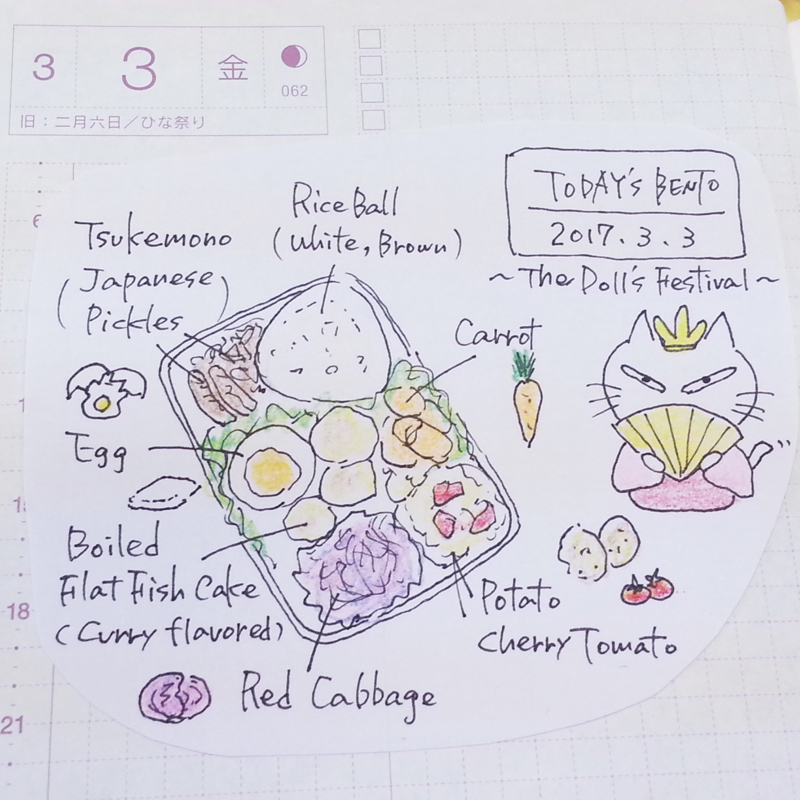 3 3 金
062
旧：二月六日／ひな祭り
6
TODAY'S BENTO
2017.3.3
~The Doll's Festival~
Rice Ball
(White, Brown)
Tsukemono
(Japanese
Pickles)
Carrot
Egg
Boiled
Flat Fish Cake
(Curry flavored)
Potato
Cherry Tomato
Red Cabbage
18
21